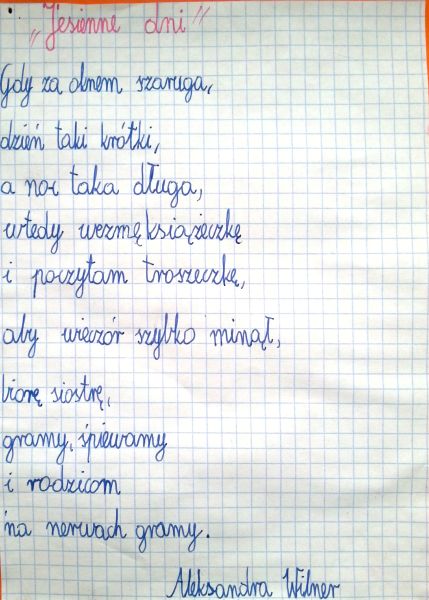 „Jesienne dni"
Gdy za oknem szaruga,
dzień taki krótki,
a noc taka długa,
wtedy wezmę książeczkę
i poczytam troszeczkę,
aby wieczór szybko minął,
biorę siostrę,
gramy, śpiewamy
i rodzicom
na nerwach gramy.
Aleksandra Wilner